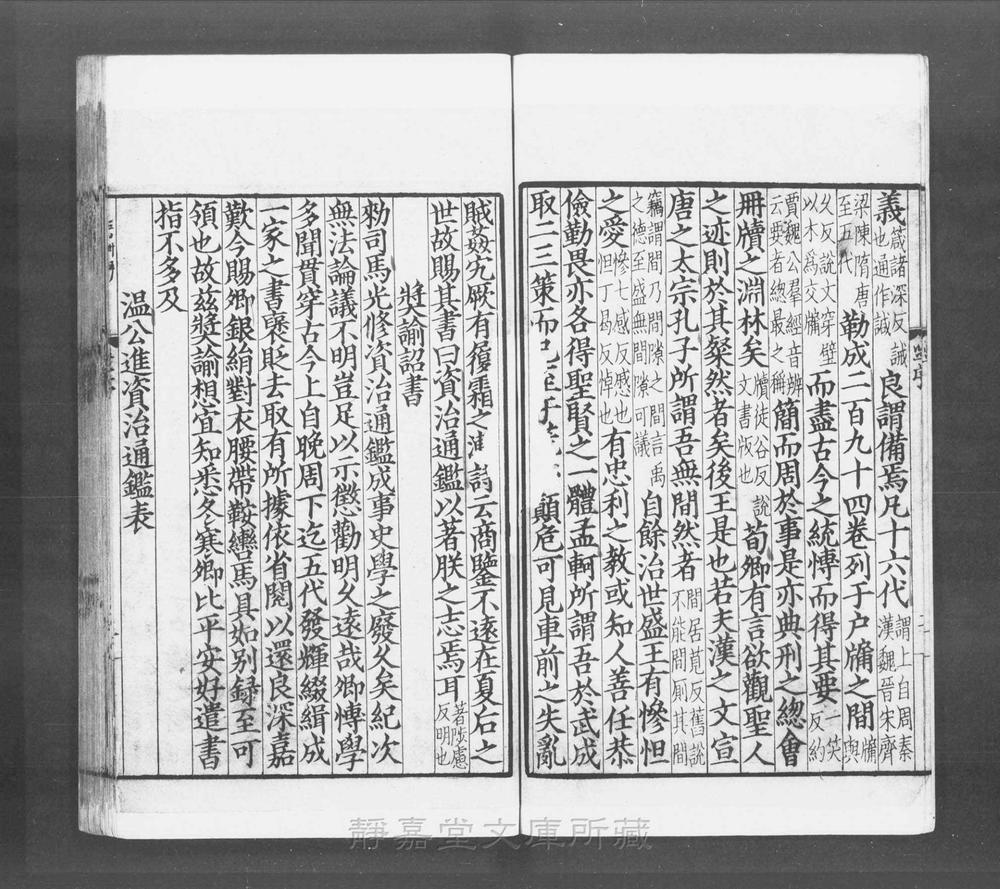 義箴諸深反誡也通作誡良謂備焉凡十六代謂上自周秦漢魏晉宋齊
梁陳隋唐至五代勒成二百九十四卷列于戶牖之間牖與
久反說文穿壁以木爲交牕而盡古今之統愽而得其要一笑反約
賈魏公羣經音辨云要者總最之稱簡而周於事是亦典刑之總會
冊牘之淵林矣牘徒谷反說文書版也荀卿有言欲觀聖人
之迹則於其粲然者矣後王是也若夫漢之文宣
唐之太宗孔子所謂吾無間然者間居莧反舊說不能間廁其間
竊謂間乃間隙之間言禹之德至盛無間隙可議自餘治世盛王有慘怛
之愛慘七感反感也怛丁曷反悼也有忠利之教或知人善任恭
儉勤畏亦各得聖賢之一體孟軻所謂吾於武成
取二三策而已至于顛危可見車前之失亂
賊姦宄厥有履霜之漸詩云商鑒不遠在夏后之
世故賜其書曰資治通鑑以著朕之志焉耳著陟慮反明也
奬諭詔書
勑司馬光修資治通鑑成事史學之廢久矣紀次
無法論議不明豈足以示懲勸明久遠哉卿愽學
多聞貫穿古今上自晚周下迄五代發輝綴緝成
一家之書襃貶去取有所據依省閱以還良深嘉
歎今賜卿銀絹對衣腰帶鞍轡馬具如别録至可
領也故茲奬諭想宜知悉冬寒卿比平安好遣書
指不多及
温公進資治通鑑表
靜嘉堂文庫所藏